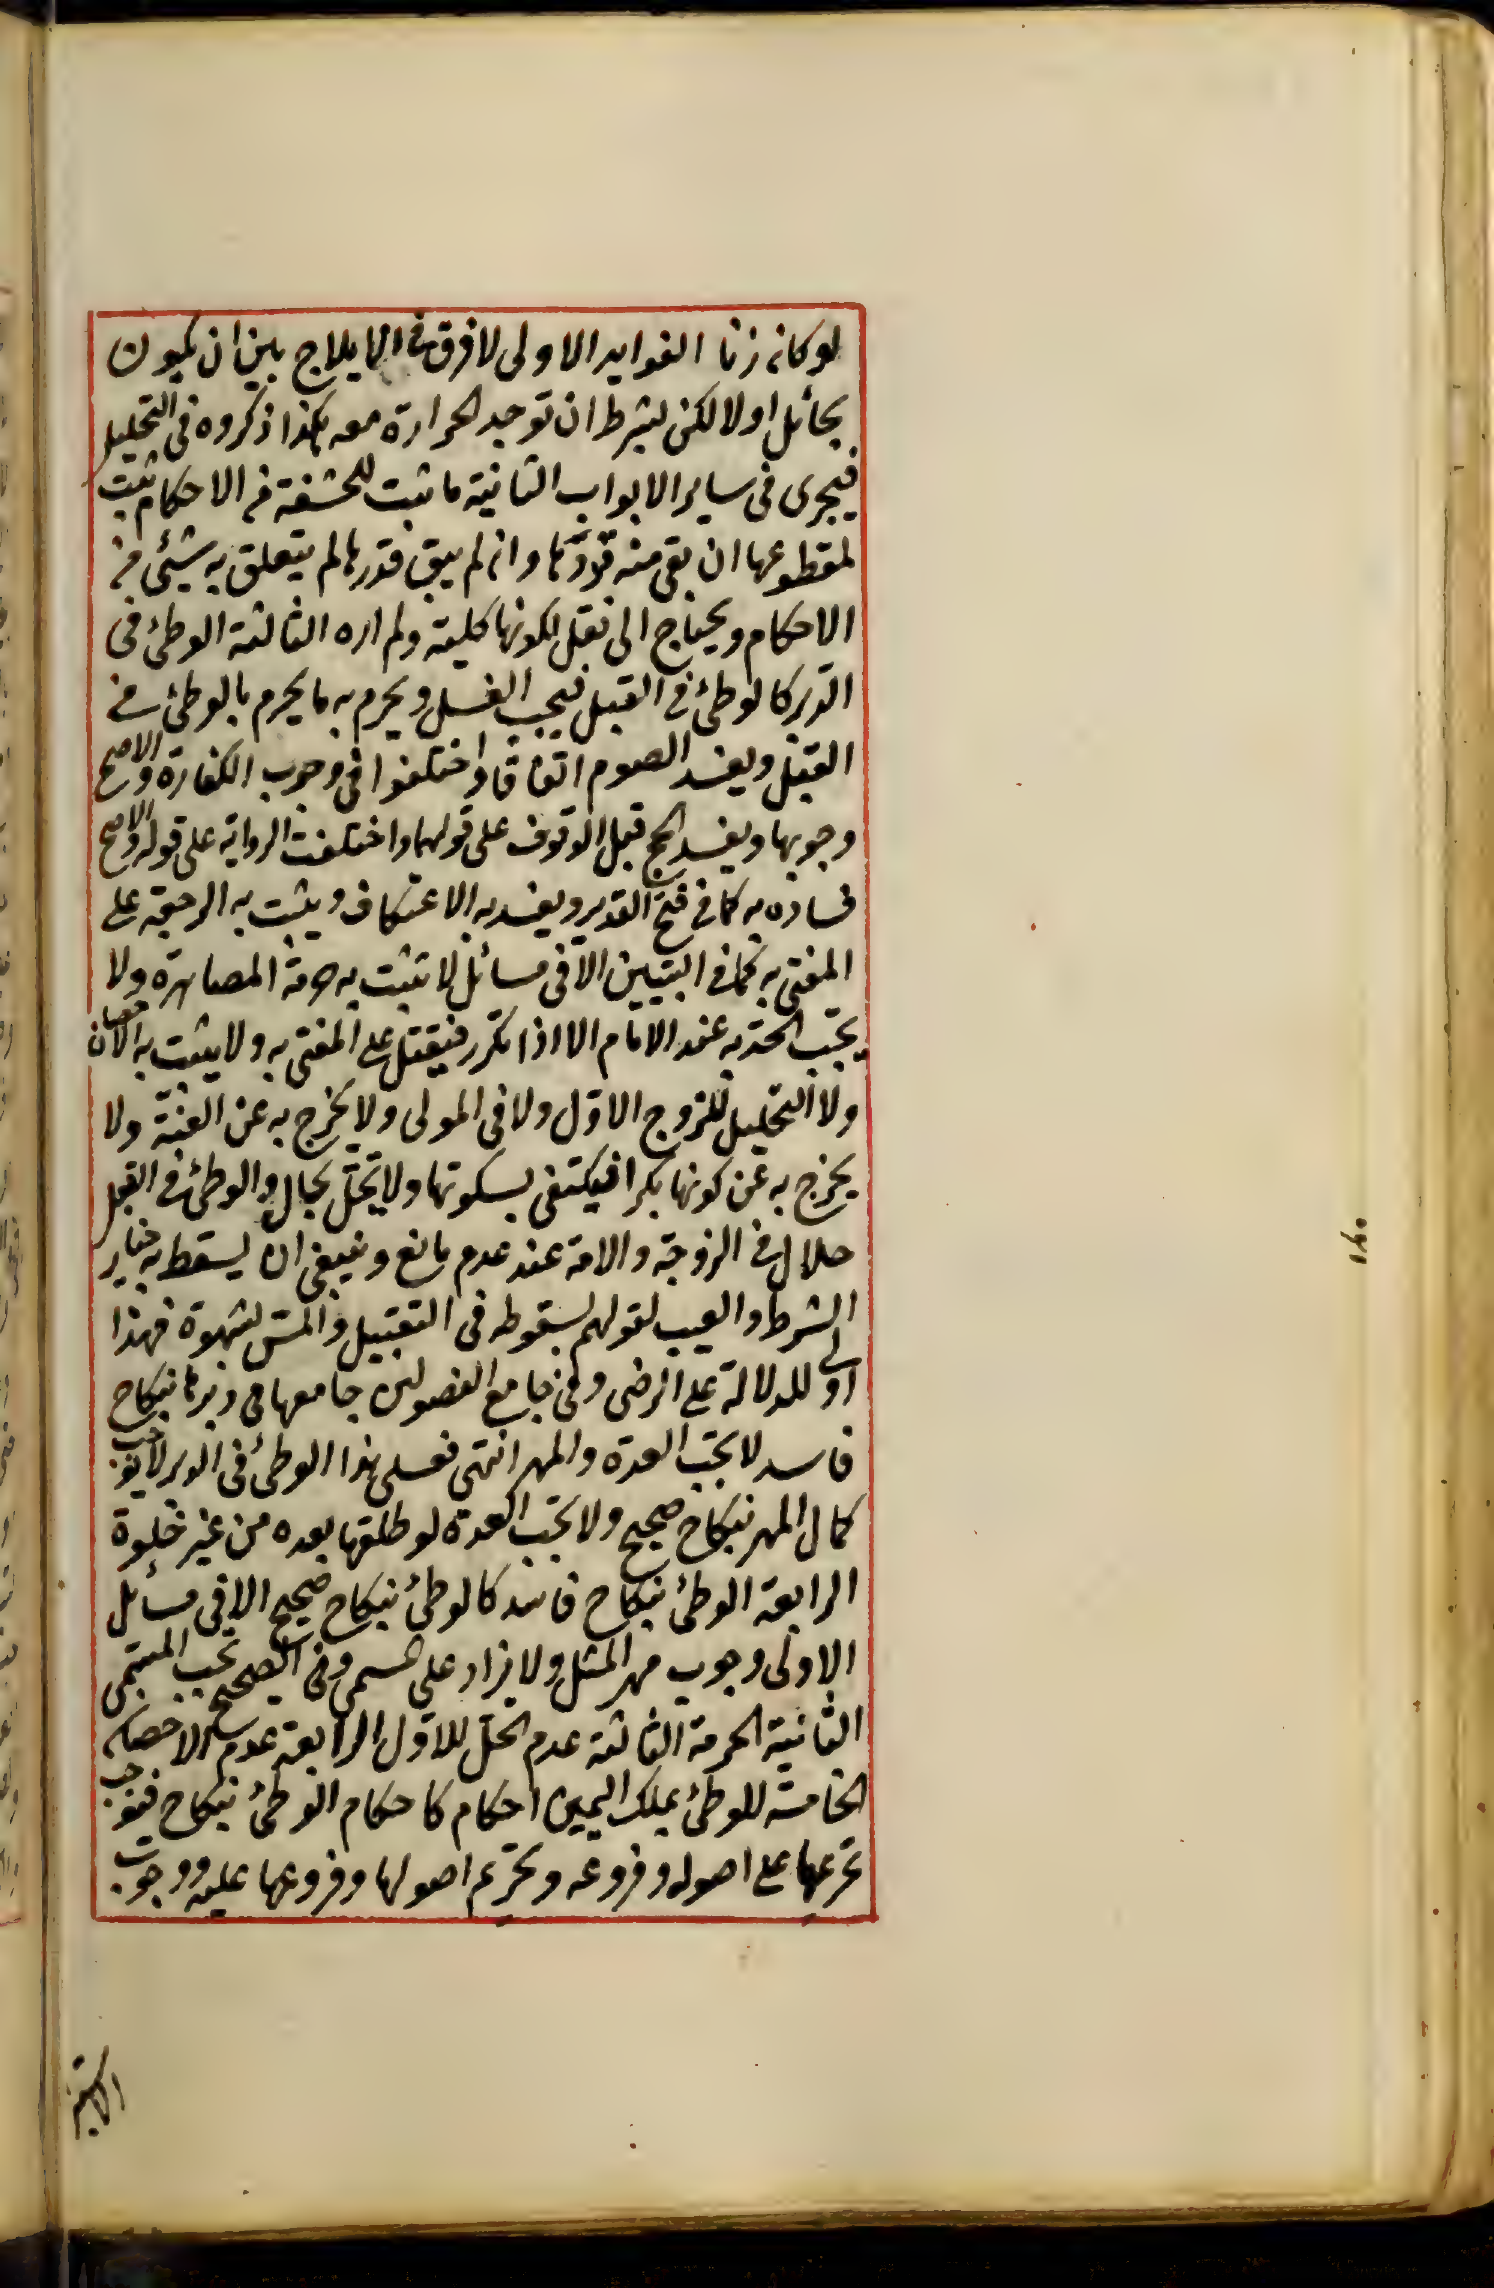 لو كانه زنا الفوايد الاولى لا فرق في الايلاج بين ان يكون
بحائل اولا لكن بشرط ان توجد الحرارة معه هكذا ذكروه في التحليل
فيجرى في ساير الابواب الثانية ما ثبت للحشفة من الاحكام ثبت
لمقطوعها ان بقى منه قدرها وان لم يبق قدرها لم يتعلق به شيئ من
الاحكام ويحتاج الى نقل لكونها كلية ولم اره الثالثة الوطئ فى
الدبر كالوطئ في القبل فيجب الغسل ويحرم به ما يحرم بالوطئ في
القبل ويفسد الصوم اتفاقا واختلفوا فى وجوب الكفارة والاصح
وجوبها ويفسد الحج قبل الوقوف على قولهما واختلفت الرواية على قوله والاصح
فساده به كما في فتح القدير ويفسد به الاعتكاف ويثبت به الرجعة على
المفتى به كما في التبيين الا فى مسائل لا تثبت به حرمة المصاهرة ولا
يجب الحد به عند الامام الا اذا تكرر فيقتل على المفتى به ولا يثبت به الاحصان
ولا التحليل للزوج الاول ولا فى المولى ولا يخرج به عن العنة ولا
يخرج به عن كونها بكرا فيكتفى بسكوتها ولا يحل بحال والوطئ في القبل
حلال في الزوجة والامة عند عدم مانع وينبغى ان يسقط به خيار
الشرط والعيب لقولهم بسقوطه فى التقبيل والمس بشهوة فهذا
اولى للدلالة على الرضى وفى جامع الفصولين جامعها فى دبرها بنكاح
فاسد لا يجب العدة والمهر انتهى فعلى هذا الوطئ فى الدبر لا يوجب
كمال المهر بنكاح صحيح ولا تجب العدة لو طلقها بعده من غير خلوة
الرابعة الوطئ بنكاح فاسد كالوطئ بنكاح صحيح الا فى مسائل
الاولى وجوب مهر المثل ولا يزاد على المسمى وفى الصحيح تجب المسمى
الثانية الحرمة الثالثة عدم الحل للاول الرابعة عدم الاحصان
الخامسة للوطئ بملك اليمين احكام كاحكام الوطئ بنكاح فيوجب
تحريمها على اصوله وفروعه وتحريم اصولها وفروعها عليه ووجوب
الاستبرا